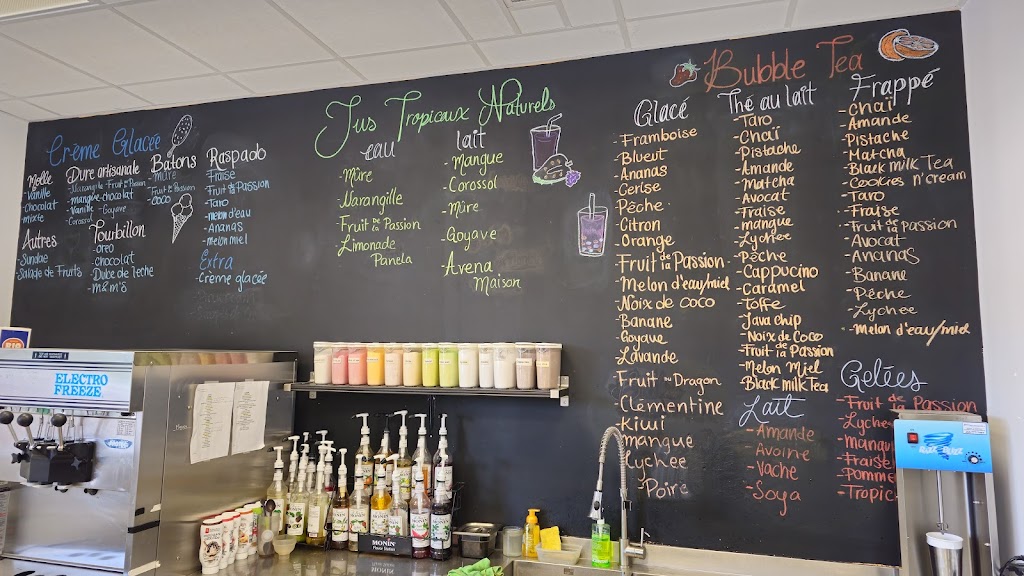 Crème Glacée
Molle
-Vanille
-Chocolat
-mixte
Autres
-Sundae
-Salade de Fruits
Dure artisanale
-Narangille
-Fruit de la Passion
-mangue
-chocolat
-Vanille
-Goyave
-Corossol
Tourbillon
-oreo
-chocolat
-Dulce de leche
-M&M'S
Batons
-mûre
-Fruit de la Passion
-coco
Raspado
-Fraise
-Fruit de la Passion
-Taro
-Melon d'eau
-Ananas
-melon miel
Extra
-Crème glacée
Jus Tropicaux Naturels
eau
-Mûre
-Narangille
-Fruit de la Passion
-Limonade
Panela
lait
-Mangue
-Corossol
-Mûre
-Goyave
-Avena
Maison
Bubble Tea
Glacé
-Framboise
-Blueut
-Ananas
-Cerise
-Pêche
-Citron
-Orange
-Fruit de la Passion
-Melon d'eau/miel
-Noix de coco
-Banane
-Goyave
-Lavande
-Fruit du Dragon
-Clémentine
-Kiwi
-mangue
-Lychee
-Poire
Thé au lait
-Taro
-Chaï
-Pistache
-Amande
-Matcha
-Avocat
-Fraise
-mangue
-Lychee
-Pêche
-Cappucino
-Caramel
-Toffe
-Java chip
-Noix de Coco
-Fruit la Passion
-Melon Miel
-Black milk Tea
Lait
-Amande
-Avoine
-Vache
-Soya
Frappé
-Chaï
-Amande
-Pistache
-Matcha
-Black Milk Tea
-Cookies n'Cream
-Taro
-Fraise
-Fruit de la Passion
-Avocat
-Ananas
-Banane
-Pêche
-Lychee
-Melon d'eau/miel
Gelées
-Fruit de la Passion
-Lyche
-mangu
-Fraise
-Pomme
-Tropic
ELECTRO
FREEZE
MONIN